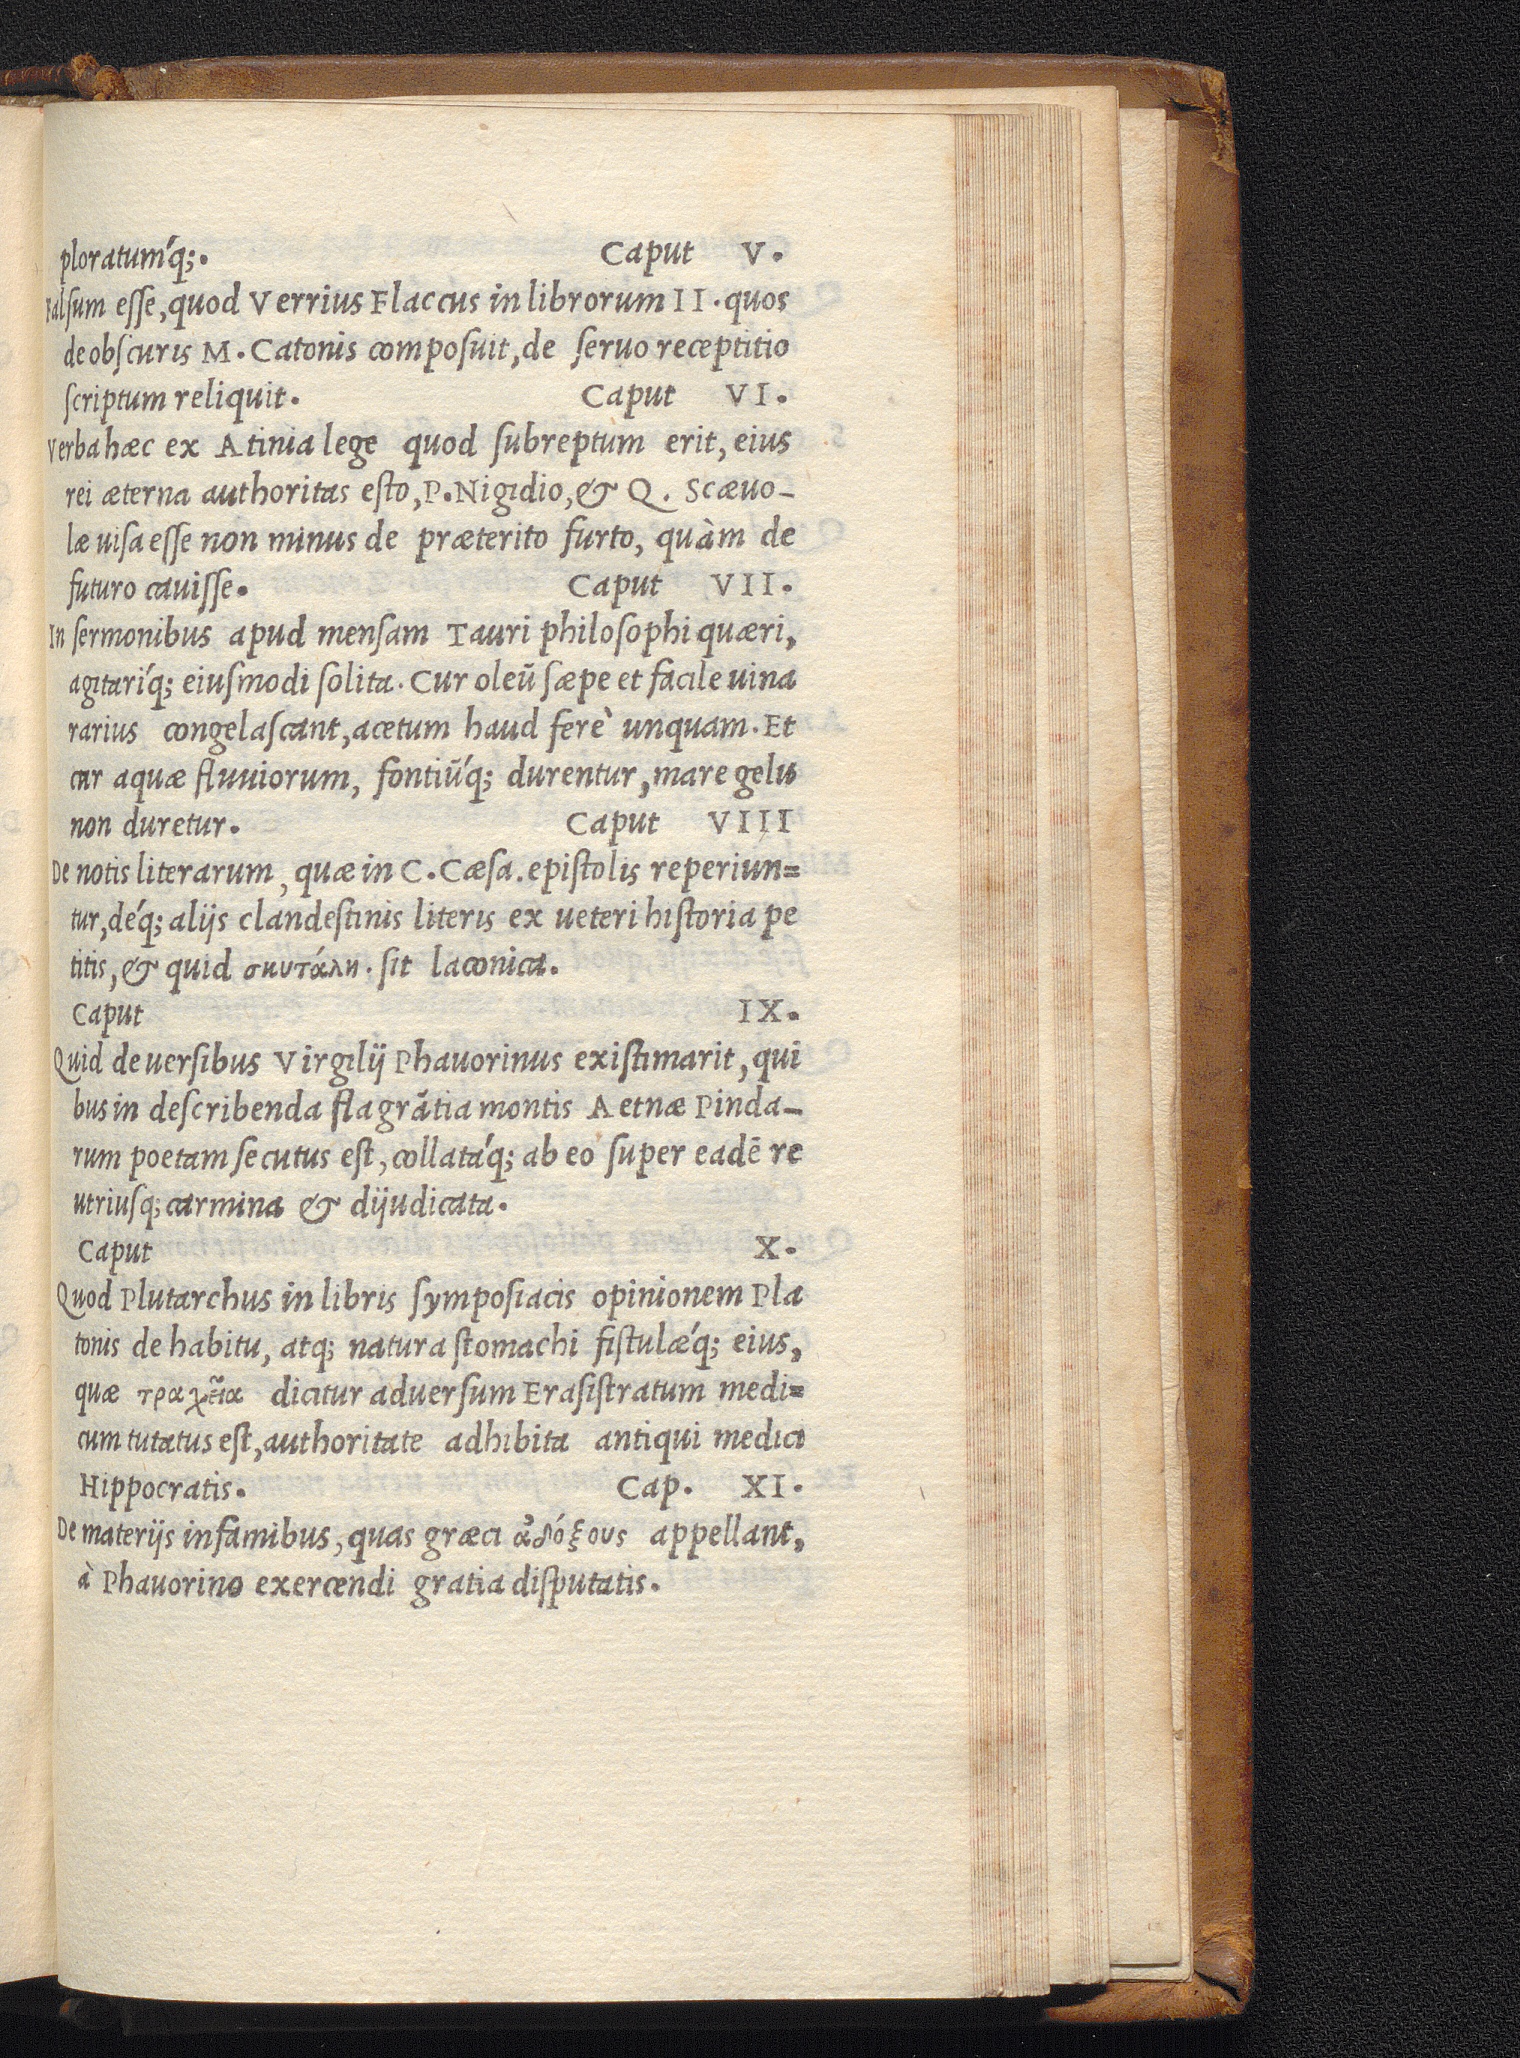 ploratum´q;. Caput V.
Falsum esse, quod Verrius Flaccus in librorum II. quos
de obscuris M. Catonis composuit, de seruo receptitio
scriptum reliquit. Caput VI.
Verba hæc ex Atinia lege quod subreptum erit, eius
rei æterna authoritas esto, P. Nigidio, & Q. Scæuo-
læ uisa esse non minus de præterito furto, quàm de
futuro cauisse. Caput VII.
In sermonibus apud mensam Tauri philosophi quæri,
agitari´q; eiusmodi solita. Cur oleũ sæpe et facile uina
rarius congelascant, acetum haud ferè unquam. Et
cur aquæ fluuiorum, fontiũ´q; durentur, mare gelu
non duretur. Caput VIII
De notis literarum, quæ in C. Cæsa. epistolis reperiun=
tur, dé´q; alijs clandestinis literis ex ueteri historia pe
titis, & quid σκυτάλη. sit laconica.
Caput IX.
Quid de uersibus Virgilij Phauorinus existimarit, qui
bus in describenda flagrãtia montis Aetnæ Pinda-
rum poetam secutus est, collatá´q; ab eo super eadẽ re
utriusq; carmina & dijudicata.
Caput X.
Quod Plutarchus in libris symposiacis opinionem Pla
tonis de habitu, atq; natura stomachi fistulæ´q; eius,
quæ τραχεῖα dicitur aduersum Erasistratum medi=
cum tutatus est, authoritate adhibita antiqui medici
Hippocratis. Cap. XI.
De materijs infamibus, quas græci ἀδόξους appellant,
à Phauorino exercendi gratia disputatis.